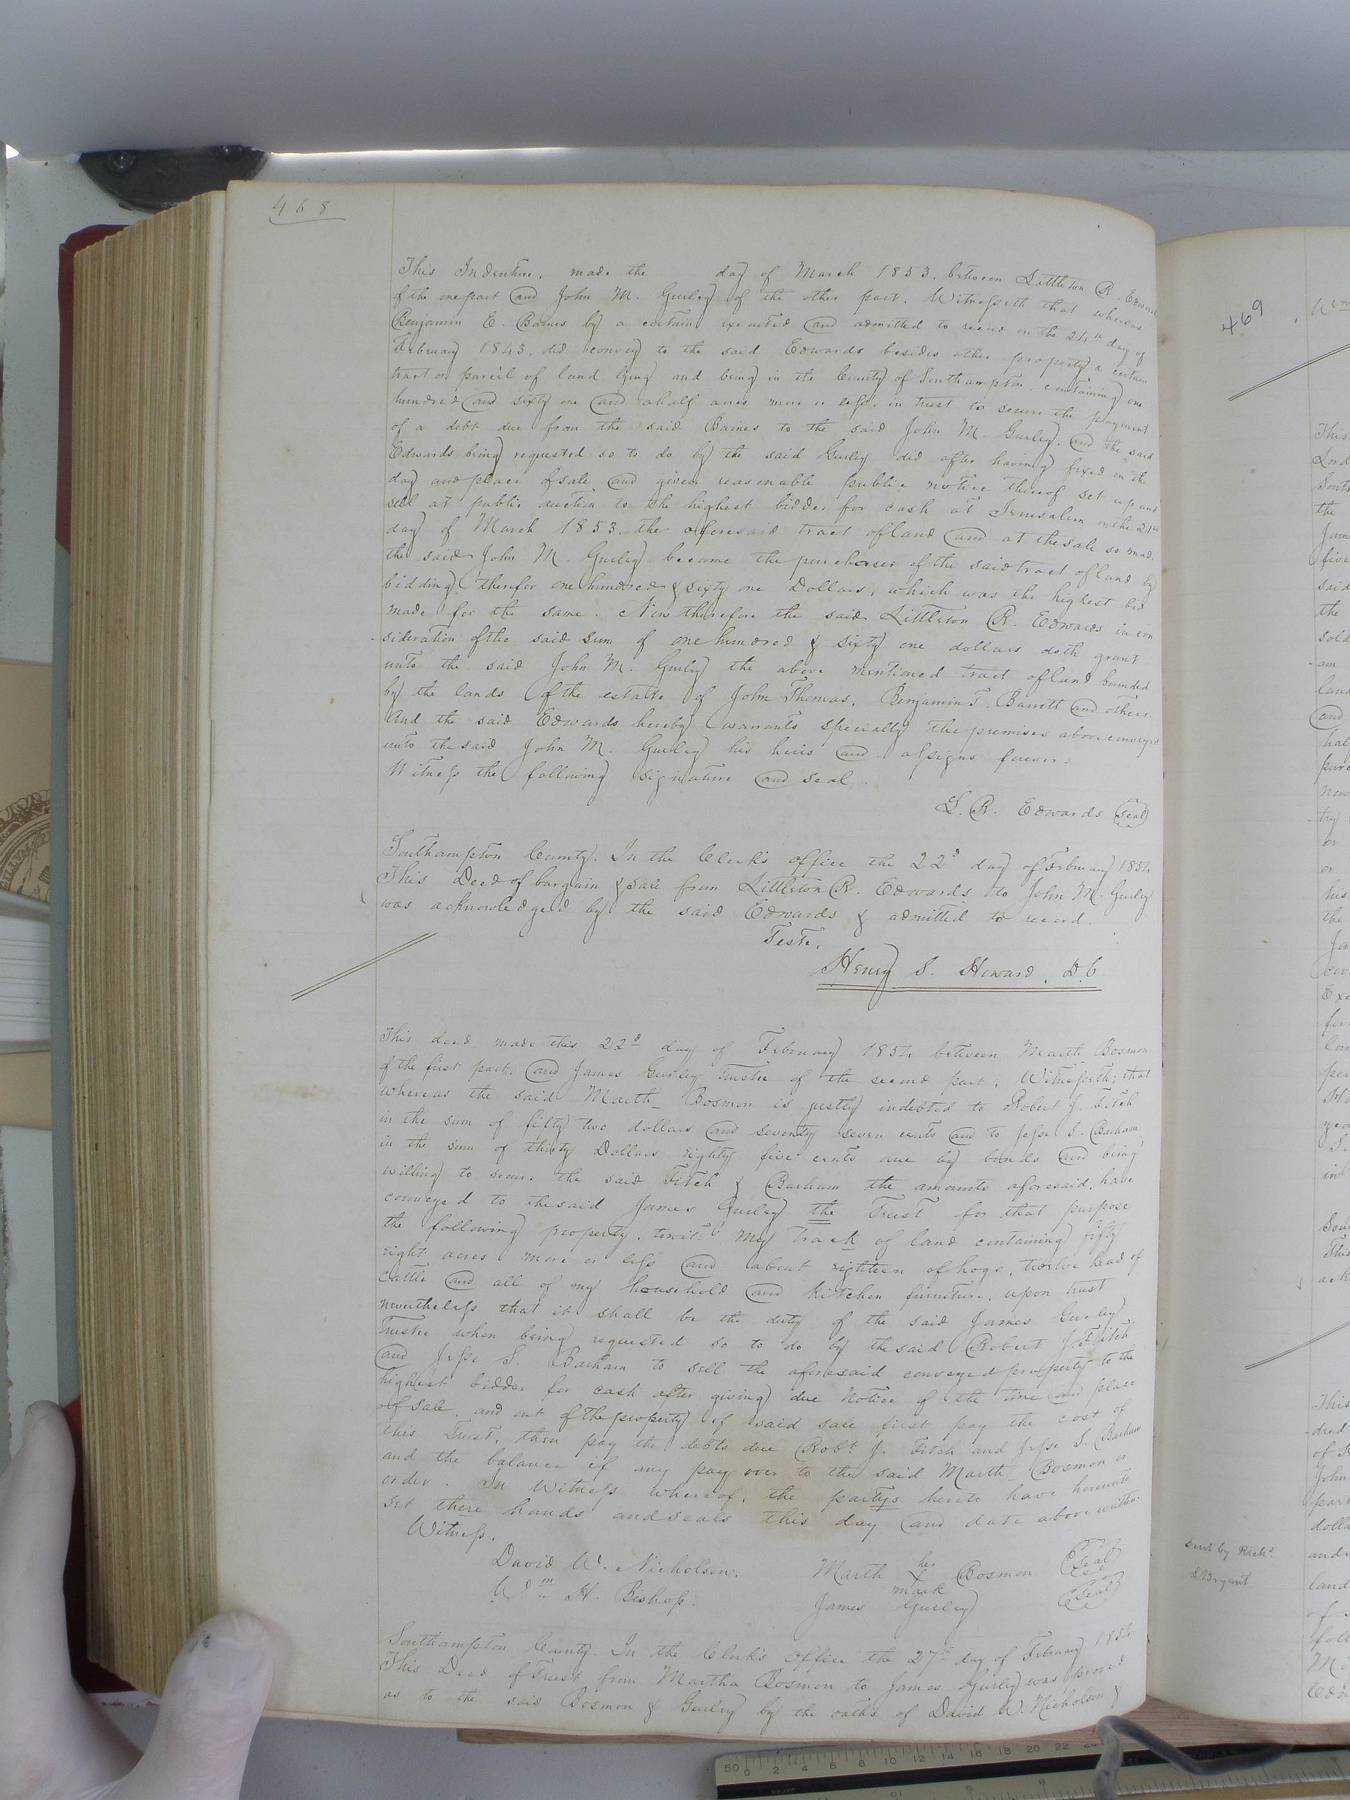 468
This Indenture, made the day of March 1853, between Littleton R. Edwards
of the one part and John M. Gurley of the other part, Witnesseth that whereas
Benjamin E. Barnes by a certain executed and admitted to record on the 24th day of
February 1843, did convey to the said Edwards besides other property a certain
tract or parcel of land lying and being in the County of Southampton containing one
hundred and sixty one and a half acres more or less, in trust to secure the payment
of a debt due from the said Barnes to the said John M. Gurley, and the said
Edwards being requested so to do by the said Gurley did after having fixed on the
day and place of sale and given reasonable public notice thereof set up and
sell at public auction to the highest bidder for cash at Jerusalem on the 21st
day of March 1853 the aforesaid tract of land and at the sale so made
the said John M. Gurley became the purchaser of the said tract of land by
bidding therefor one hundred & sixty one Dollars, which was the highest bid
made for the same. Now therefore the said Littleton R. Edwards in con
sideration of the said sum of one hundred & sixty one dollars doth grant
unto the said John M. Gurley the above mentioned tract of land bounded
by the lands of the estate of John Thomas, Benjamin T. Barrett and others
And the said Edwards hereby warrants specially the premises above conveyed
unto the said John M. Gurley his heirs and assigns forever.
Witness the following signature and seal.
L. R. Edwards seal
Southampton County. In the Clerk's office the 22d day of February 1854
This Deed of bargain & sale from Littleton R. Edwards to John M. Gurley
was acknowledged by the said Edwards & admitted to record.
Teste,
Henry S. Howard, D.C
This deed made this 22d day of February 1854 between Marth Bosmon
of the first part, and James Gurley Trustee of the second part; Witnesseth; that
whereas the said Marth Bosmon is justly indebted to Robert J. Fitch
in the sum of fifty two dollars and seventy seven cents and to Jesse S. Barham
in the sum of thirty Dollars eighty five cents due by bonds and being
willing to secure the said Fitch & Barham the amounts aforesaid, have
conveyed to the said James Gurley the Trust for that purpose
the following property, towit: My Track of land containing fifty
eight acres more or less and about eighteen of hogs, twelve head of
cattle and all of my household and kitchen furniture, upon trust
nevertheless that it shall be the duty of the said James Gurley
Trustee when being requested so to do by the said Robert J. Fitch
and Jesse S. Barham to sell the aforesaid conveyed property to the
highest bidder for cash after giving due notice of the time and place
of sale, and out of the property of said sale first pay the cost of
this Trust, then pay the debts due Robt J. Fitch and Jesse S. Barham
and the balance if any pay over to the said Marth Bosmon or
order. In Witness whereof, the partys hereto have hereunto
set there hands and seals this day and date above written
Witness,
David W. Nicholson. Marth her Bosmon seal
Wm H. Bishop. mark
James Gurley seal
Southampton County. In the Clerk's Office the 27th day of February 1854
This Deed of Trust from Martha Bosmon to James Gurley was proved
as to the said Bosmon & Gurley by the oaths of David W. Nicholson &
469
Sent by
Bryant